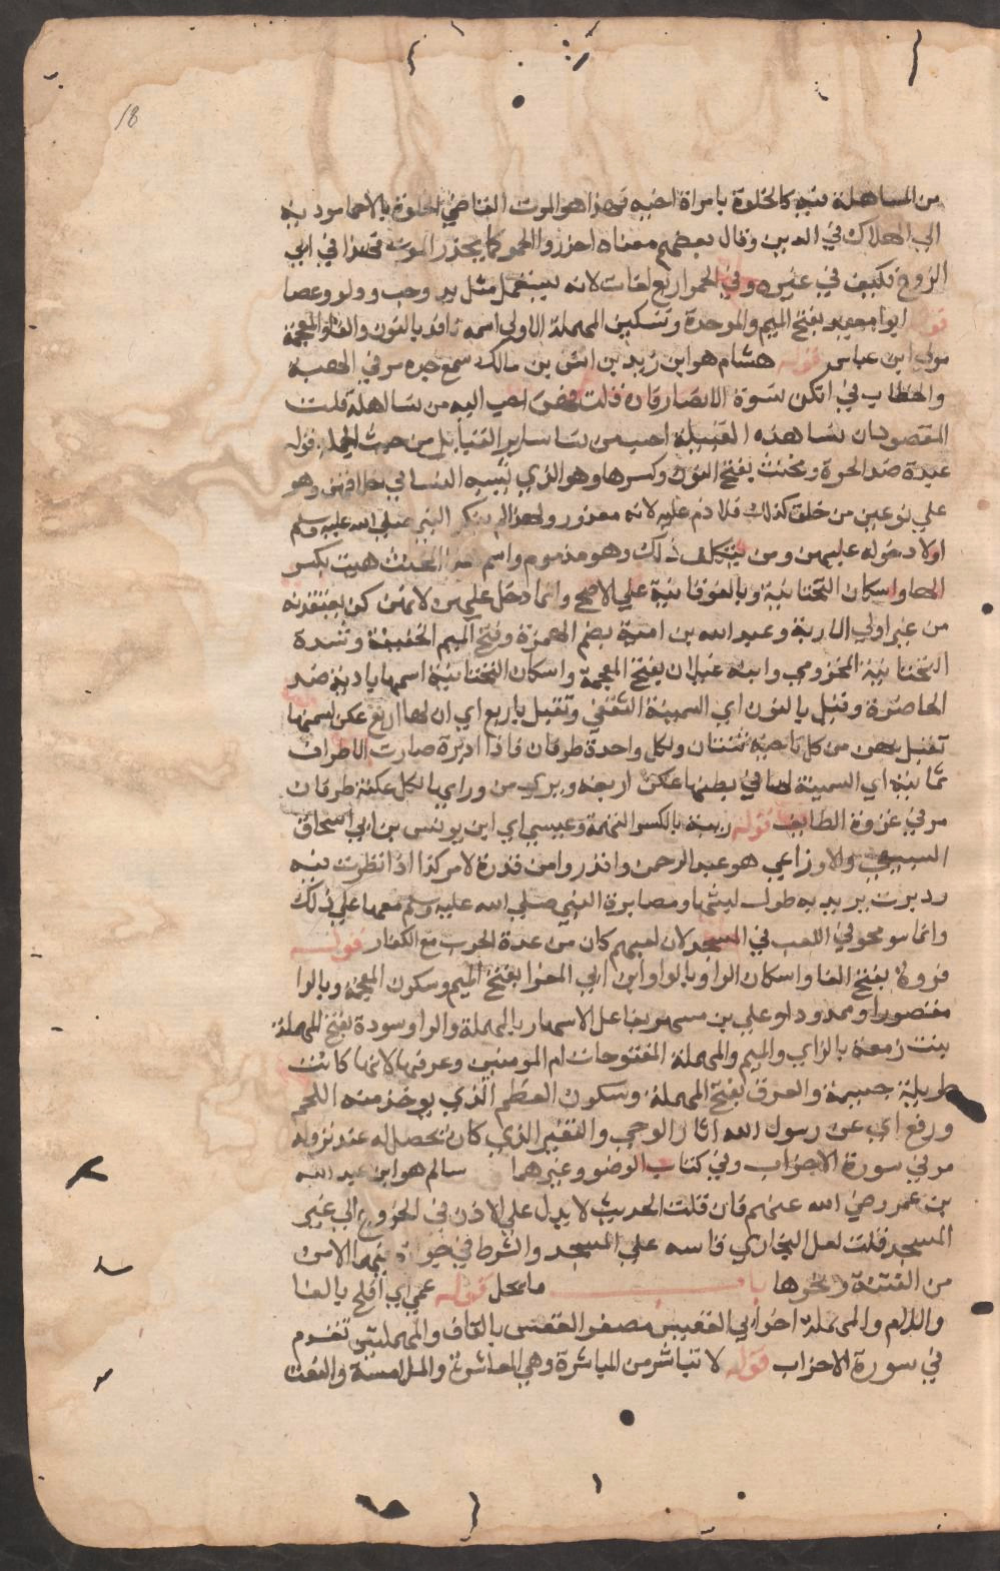 18
من المساهلة فيه كالخلوة بامراة اخيه فهذا هو الموت القاضي الخلوة بالاحما موديه
الي الهلاك في الدين وقال بعضهم معناه احذروا الحمو كما يحذر الموت فهذا في ابي
الزوج فكيف في غيره وفي الحمو اربع لغات لانه يستعمل مثل يد وخب ودلو وعصا
قوله ابو معبد بفتح الميم والموحدة وتسكين المهملة الاولي اسمه نافذ بالنون والفا والمعجمة
مولي ابن عباس قوله هشام هو ابن زيد بن انس بن مالك سمع جده مر في الهبة
والخطاب في انكن نسوة الانصار فان قلت احب اليه من نسا اهله قلت
المقصود ان نسا هذه القبيلة احب من نسا ساير القبايل من حيث الجملة قوله
عبدة ضد الحرة ومخنث بفتح النون وكسرها وهو الذي يشبه النسا في اخلاقهن وهو
علي نوعين من خلق كذلك فلا ذم عليه لانه معذور ولهذا لم ينكر النبي صلي الله عليه وسلم
اولا دخوله عليهن ومن يتكلف ذلك وهو مذموم واسم هذا المخنث هيت بكسر
الها واسكان التحتانية وبالفوقانية علي الاصح وانما دخل عليهن لانهن كن يعتقدنه
من غير اولي الاربة وعبد الله بن امية بضم الهمزة وفتح الميم الخفيفة وشدة
التحتانية المخزومي وابنة غيلان بفتح المعجمة واسكان التحتانية اسمها بادية ضد
الحاضرة وقيل بالنون اي السمينة الثقفي وتقبل باربع اي ان لها اربع عكن لسمنها
تقبل بهن من كل ناحية ثنتان ولكل واحدة طرفان فاذا ادبرة صارت الاطراف
ثمانية اي السمينة لها في بطنها عكن اربعة ويري من ورايها لكل عكنة طرفان
مر في غزوة الطايف قوله ريبة بالكسر التهمة وعيسي اي ابن يونس بن ابي اسحاق
السبيعي والاوزاعي هو عبد الرحمن واقدروا من قدرة لامر كذا اذا نظرت فيه
ودبرت يريد به طول لبثها ومصابرة النبي صلي الله عليه وسلم معها علي ذلك
وانما سومحو في اللعب في المسجد لان لعبهم كان من عدة الحرب مع الكفار قوله
فروة بفتح الفا واسكان الرا وبالواو ابن ابي المغرا بفتح الميم وسكون المعجمة وبالرا
مقصورا وممدودا وعلي بن مسهر بفاعل الاسهار بالمهملة والرا وسودة بفتح المهملة
بنت زمعة بالزاي والميم والمهملة المفتوحات ام المومنين وعرفها لانها كانت
طويلة جسيمة والعرق بفتح المهملة وسكون العظم الذي يوخذ منه اللحم
ورفع اي عن رسول الله اثار الوحي والتغير الذي كان تحصل له عند نزوله
مر في سورة الاحزاب وفي كتاب الوضو وغيرهما سالم هو ابن عبد الله
بن عمر رضي الله عنهم فان قلت الحديث لا يدل علي الاذن في الخروج الي غير
المسجد قلت لعل البخاري قاسه علي المسجد والشرط في جوازه فيهما الامن
من الفتنة ونحوها باب ما يحل قوله عمي اي افلح بالفا
واللام والمهملة اخو ابي القعيس مصغر القعس بالقاف والمهملتين تقدم
في سورة الاحزاب قوله لا تباشر من المباشرة وهي المعاشرة والملامسة والنعت